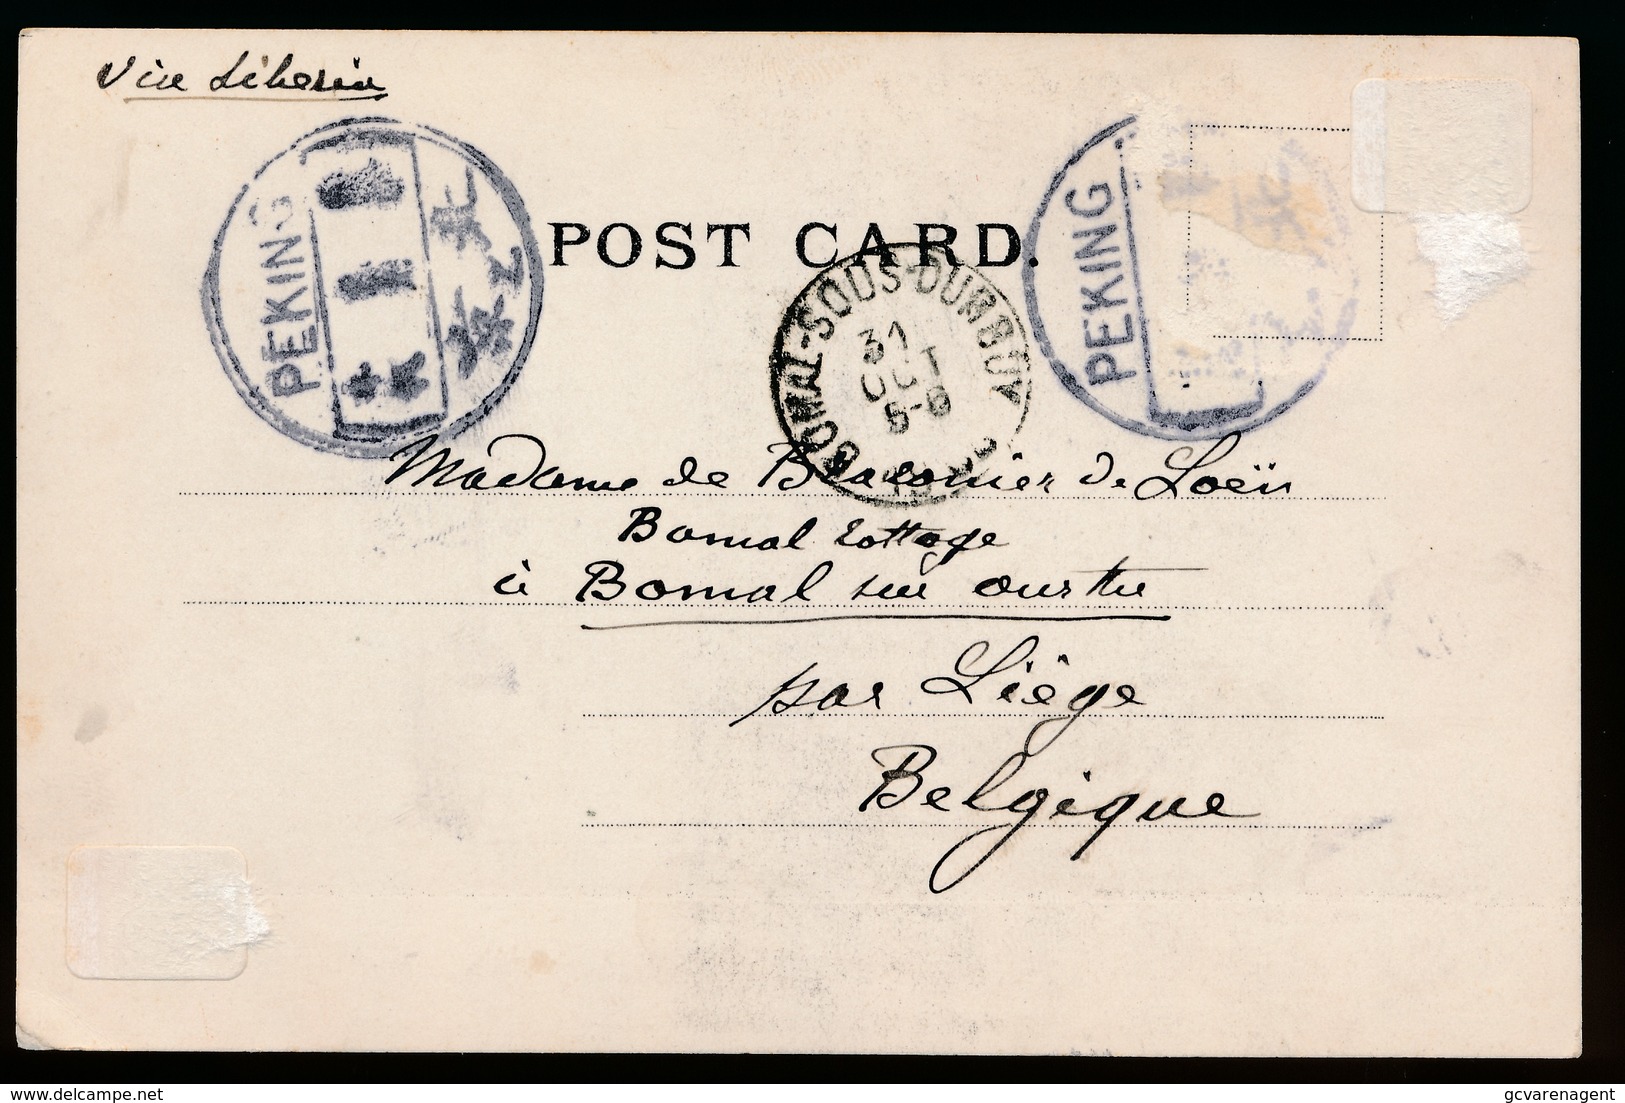 Via Siberia
PEKING
北
POST CARD.
PEKING
BOMAL-SOUS-DURBUY
31
OCT
5-6
Madame de Braconier de Loën
Bomal Cottage
à Bomal sur ourthe
par Liège
Belgique
delcampe.net
gcvarenagent